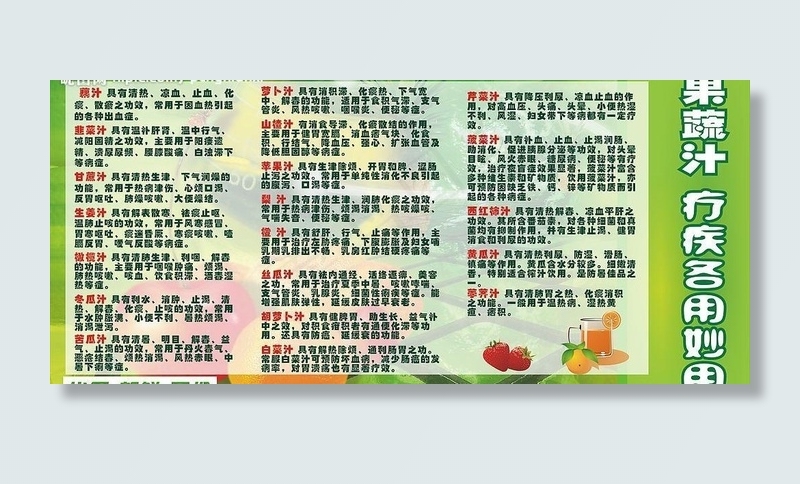 藕汁 具有清热、凉血、止血、化
瘀、散瘀之功效，常用于因血热引起
的各种出血症。
韭菜汁 具有温补肝肾、温中行气、
减阳固精之功效，主要用于阳痿遗
精、溃尿尿频、腰膝酸痛、白浊滞下
等病症。
甘蔗汁 具有清热生津、下气润燥的
功能，常用于热病津伤、心烦口渴、
反胃呕吐、肺燥咳嗽、大便燥结。
生姜汁 具有解表散寒、祛痰止呕、
温肺止咳的功效，常用于风寒感冒、
胃寒呕吐、
膈反胃、嗳气反酸等病症。
具有清热生津、利咽、解毒
的功能，主要用于咽喉肿痛、烦渴、
热等症。
冬瓜汁 具有利水、消肿、止渴、清
热、解毒、化痰、止咳的功效，常用
于水肿胀满、小便不利、暑热烦渴、
消渴泄泻。
苦瓜汁 具有清暑、明目、解毒、益
气、止渴的功效，常用于丹火毒气、
恶疮结毒、烦热消渴、风热赤眼、中
暑下痢等症。
萝卜汁 具有消积滞、化痰热、下气宽
中、解毒的功能，适用于食积气滞、支气
管炎、风热咳嗽、咽喉炎、便秘等症。
山渣汁 有消食导滞、化瘀散结的作用，
主要用于健胃宽膈、消血瘀气块、化食
积、行结气、降血压、强心、扩张血管及
降低胆固醇等病症。
苹果汁 具有生津除烦、开胃和脾、涩肠
止泻之功效。常用于单纯性消化不良引起
的腹泻、口渴等症。
梨 汁 具有清热生津、润肺化痰之功效，
常用于热病津伤、烦渴消渴、热咳燥咳、
气喘失音、便秘等症。
具有舒肝、行气、止痛等作用，主
要用于治疗左肋疼痛、下腹膨胀及妇女哺
乳期乳排出不畅，乳房红肿结硬疼痛等
症。
丝瓜汁 具有祛内通经、活络进液、美容
之功，常用于治疗夏季中暑、咳嗽哮喘、
支气管炎、乳腺炎、细菌性痢疾等症。能
增强肌肤弹性，延缓皮肤过早衰老。
胡萝卜汁 具有健脾胃、助生长、益气补
中之效，对积食疳积者有通便化滞等功
用。还具有防癌、延缓衰的功能。
白菜汁 具有解热除烦、通利肠胃之功。
常服白菜汁可预防坏血病，减少肠癌的发
病率，对胃溃疡也有显着疗效。
芹菜汁 具有降压利尿、凉血止血的作
用，对高血压、头痛、头晕、小便热湿
不利、风湿、妇女带下等病都有一定疗
效。
菠菜汁 具有补血、止血、止渴润肠、
助消化、促进胰腺分泌等功效，对头晕
目眩、风火赤眼、糖尿病、便秘等有疗
效，治疗夜盲症效果显著，菠菜汁富含
多种维生素和矿物质，饮用菠菜汁，亦
可预防因缺乏铁、钙、锌等矿物质而引
起的各种病症。
西红柿汁 具有清热解毒、凉血平肝之
功效。其所含番茄素，对各种细菌和真
菌均有抑制作用，并有生津止渴、健胃
消食和利尿的功效。
黄瓜汁 具有清热利尿、防湿、滑肠、
镇痛等作用。黄瓜含水分较多、细腻清
香，特别适合榨汁饮用。是防暑佳品之
一。
荸荠汁 具有清肺胃之热、化痰消积
之功能。一般用于温热病、湿热黄
疸、痞积。
果蔬汁 疗疾各用妙用